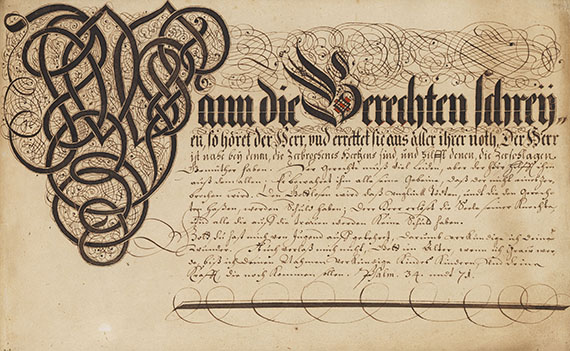 Wann die Gerechten schrey„
en, so höret der Herr, und errettet sie aus aller ihrer noth. Der Herr
ist nahe bey denen, die Zerbrochenes Hertzens sind, und hilfft denen, die Zerschlagen
Gemüther haben. Der Gerechte muß viel leiden, aber der Herr hilfft ihm
auß dem allen. Er bewahret ihm alle seine Gebeine, daß
wird. Den Gottlosen wird daß Unglück tödten, und die den Gerech„
ten haßen werden Schuld haben. Der Herr erlöset die Seele seiner Knechte,
und alle die auf ihn trauen werden Keine Schuld haben.
Gott du hast mich von Jugend auf gelehret,
Wunder. Auch verlaß mich nicht, Gott im Alter, wenn ich grau wer„
de, biß ich Kindes Kindern, und deine
Krafft die noch kommen sollen. Psalm. 34. et 71.